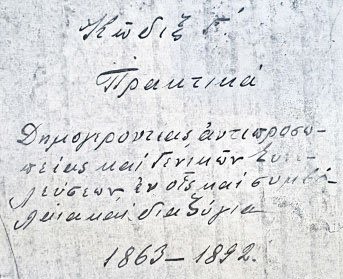 Κῶδιξ Γ΄.
Πρακτικά
Δημογεροντίας, ἀντιπροσω-
πείας καί Γενικῶν Συνε-
λεύσεων, ἐν οἷς καί συμβό-
λαια καί διαζύγια
1863–1892.